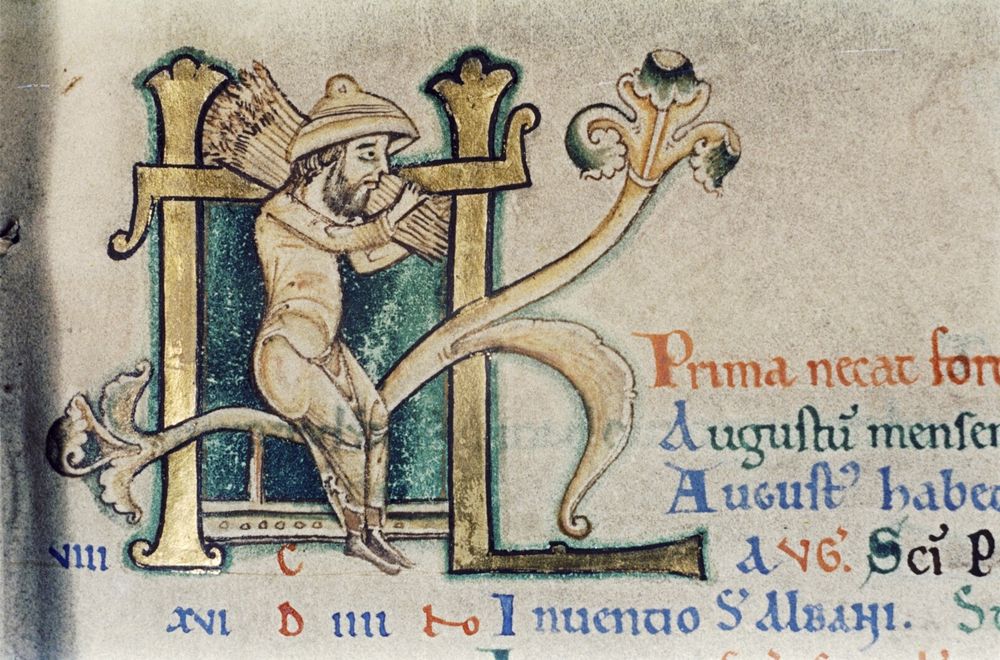 KL
Prima necat for
Auguſtū menſem
Auguſt⁹ habe
VIII C AVG. Scī P
XVI D IIII No Inuentio S' Albani.